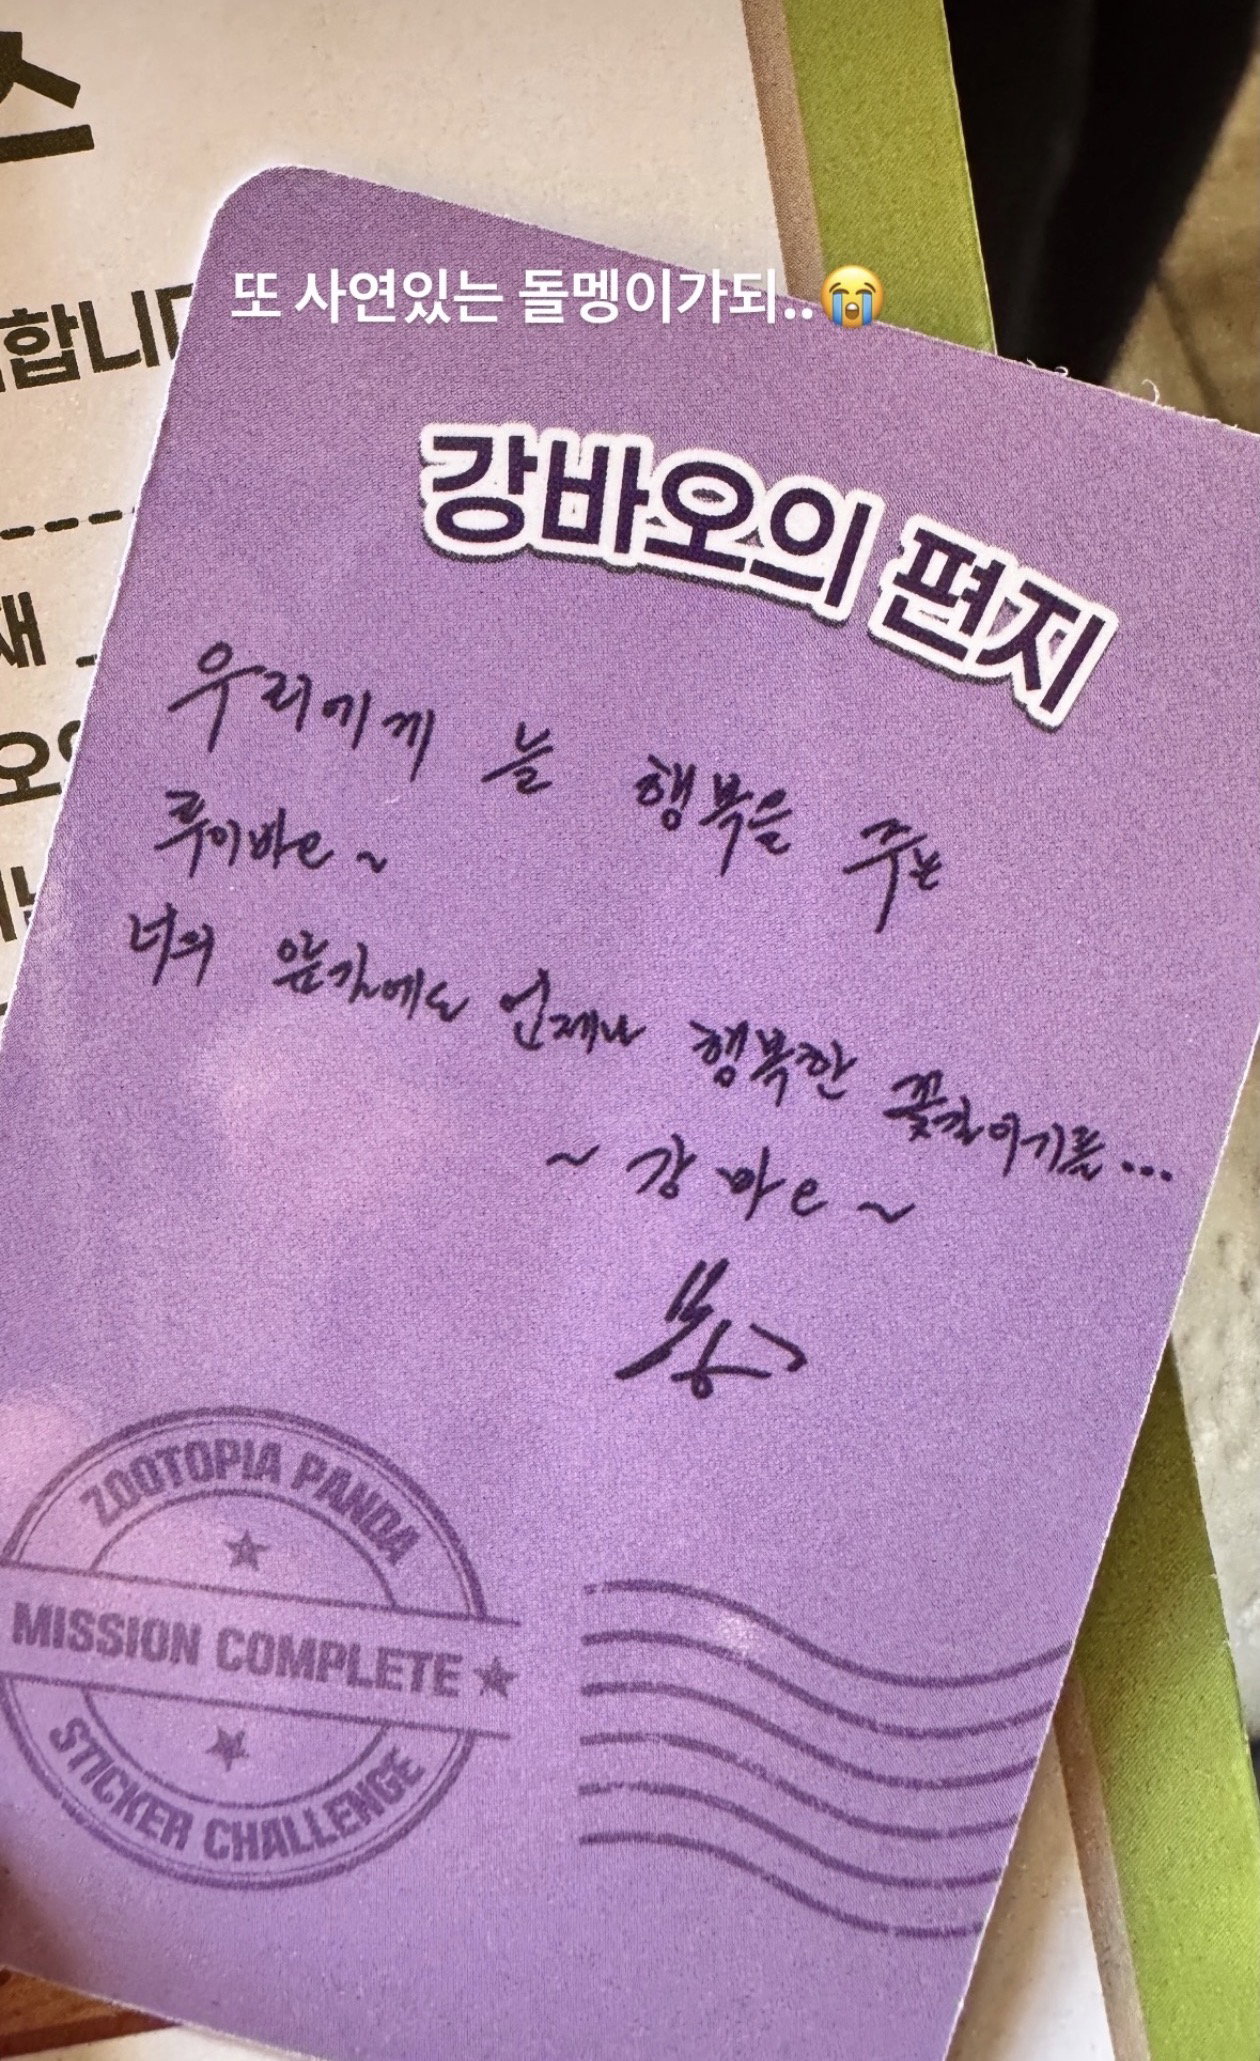 스
합니다
또 사연있는 돌멩이가되..😭
강바오의 편지
재
우리에게 늘 행복을 주는
루이바오~
너의 앞길에도 언제나 행복한 꽃길이기를...
~강바오~
ZOOTOPIA PANDA
MISSION COMPLETE
STICKER CHALLENGE